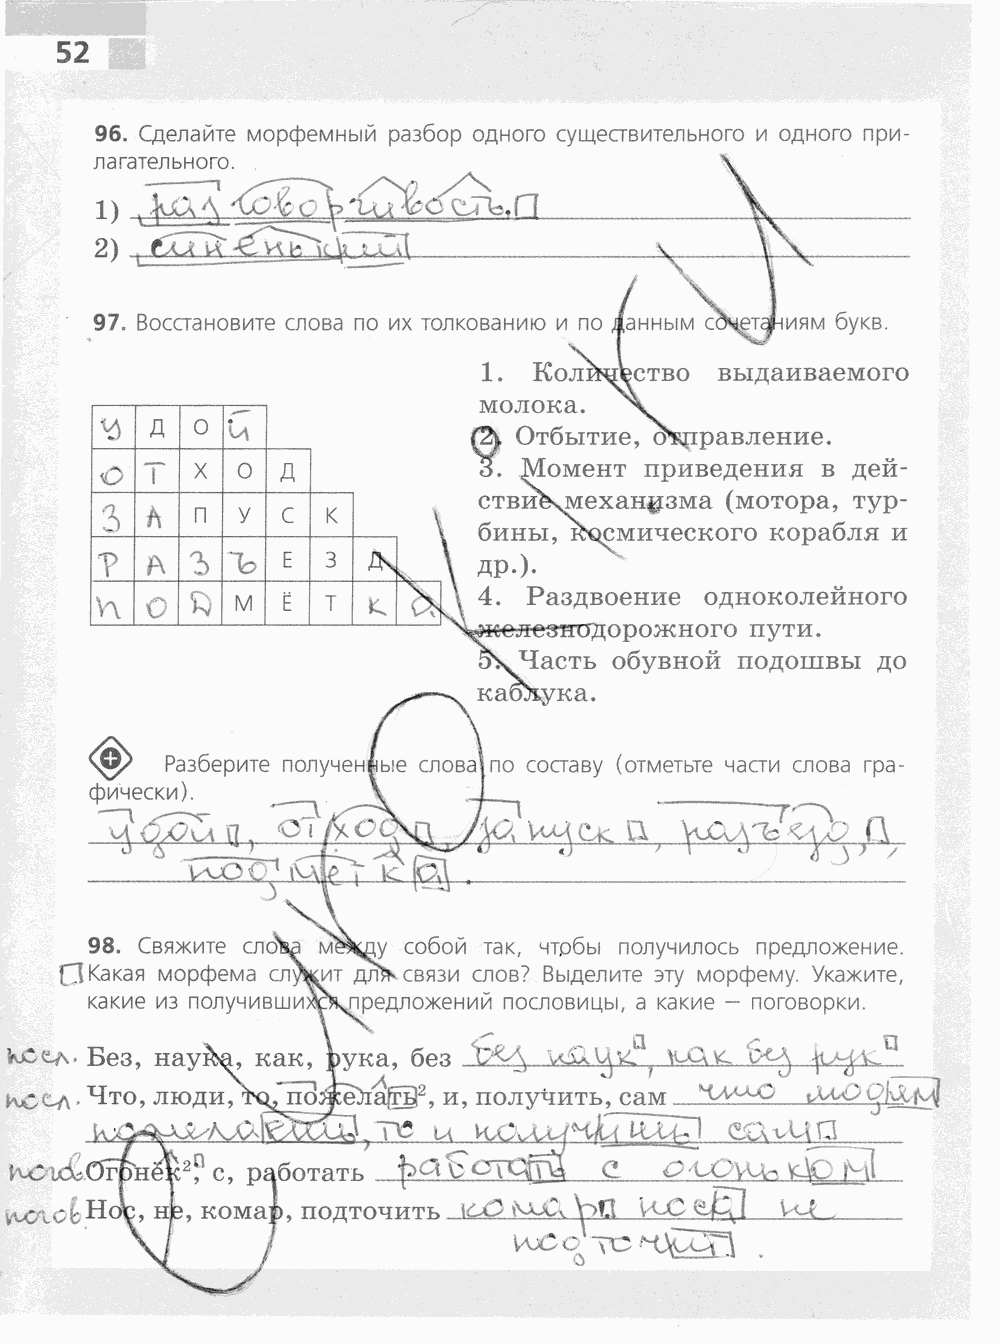 52
96. Сделайте морфемный разбор одного существительного и одного при-
лагательного.
1) разговорчивость.
2) синенький
97. Восстановите слова по их толкованию и по данным сочетаниям букв.
1. Количество выдаиваемого
молока.
2. Отбытие, отправление.
3. Момент приведения в дей-
ствие механизма (мотора, тур-
бины, космического корабля и
др.).
4. Раздвоение одноколейного
железнодорожного пути.
5. Часть обувной подошвы до
каблука.
УДОЙ
ОТХОД
ЗАПУСК
РАЗЪЕЗД
ПОДМЁТКА
Разберите полученные слова по составу (отметьте части слова гра-
фически).
удой, отход, запуск, разъезд,
подметка.
98. Свяжите слова между собой так, чтобы получилось предложение.
Какая морфема служит для связи слов? Выделите эту морфему. Укажите,
какие из получившихся предложений пословицы, а какие — поговорки.
посл. Без, наука, как, рука, без без наук, как без рук
посл. Что, люди, то, пожелать², и, получить, сам что людям
пожелаешь, то и получишь сам
погов. Огонёк², с, работать работать с огоньком
погов. Нос, не, комар, подточить комар носа не
подточит.